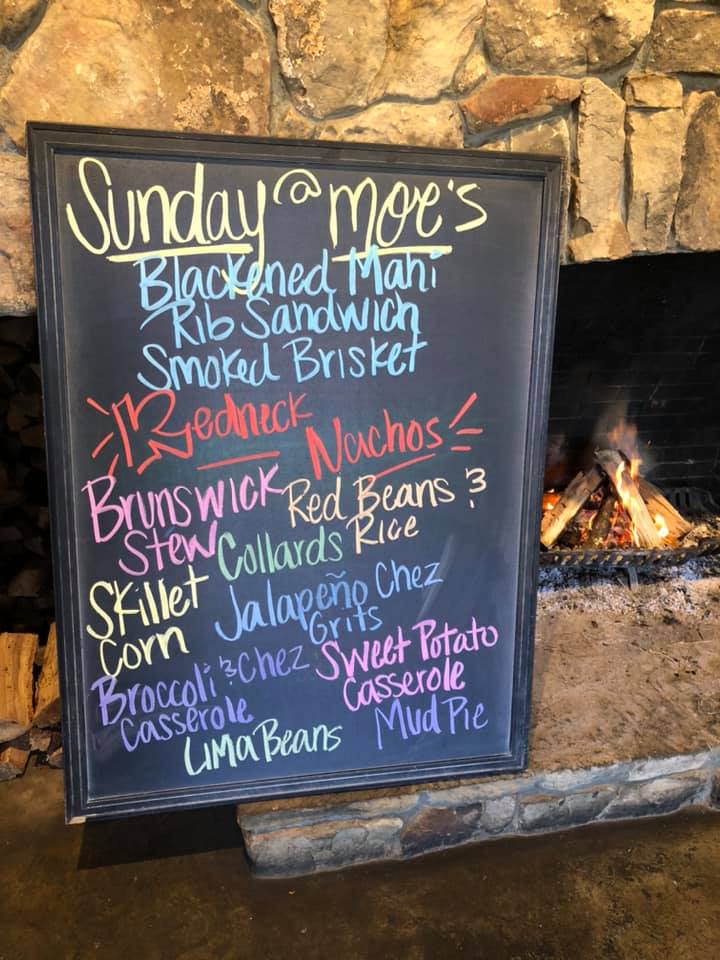 Sunday @ Moe's
Blackened Mahi
Rib Sandwich
Smoked Brisket
Redneck
Nachos
Brunswick
Stew
Red Beans &
Rice
Collards
Skillet
Corn
Jalapeño Chez
Grits
Broccoli & Chez
Casserole
Sweet Potato
Casserole
Lima Beans
Mud Pie